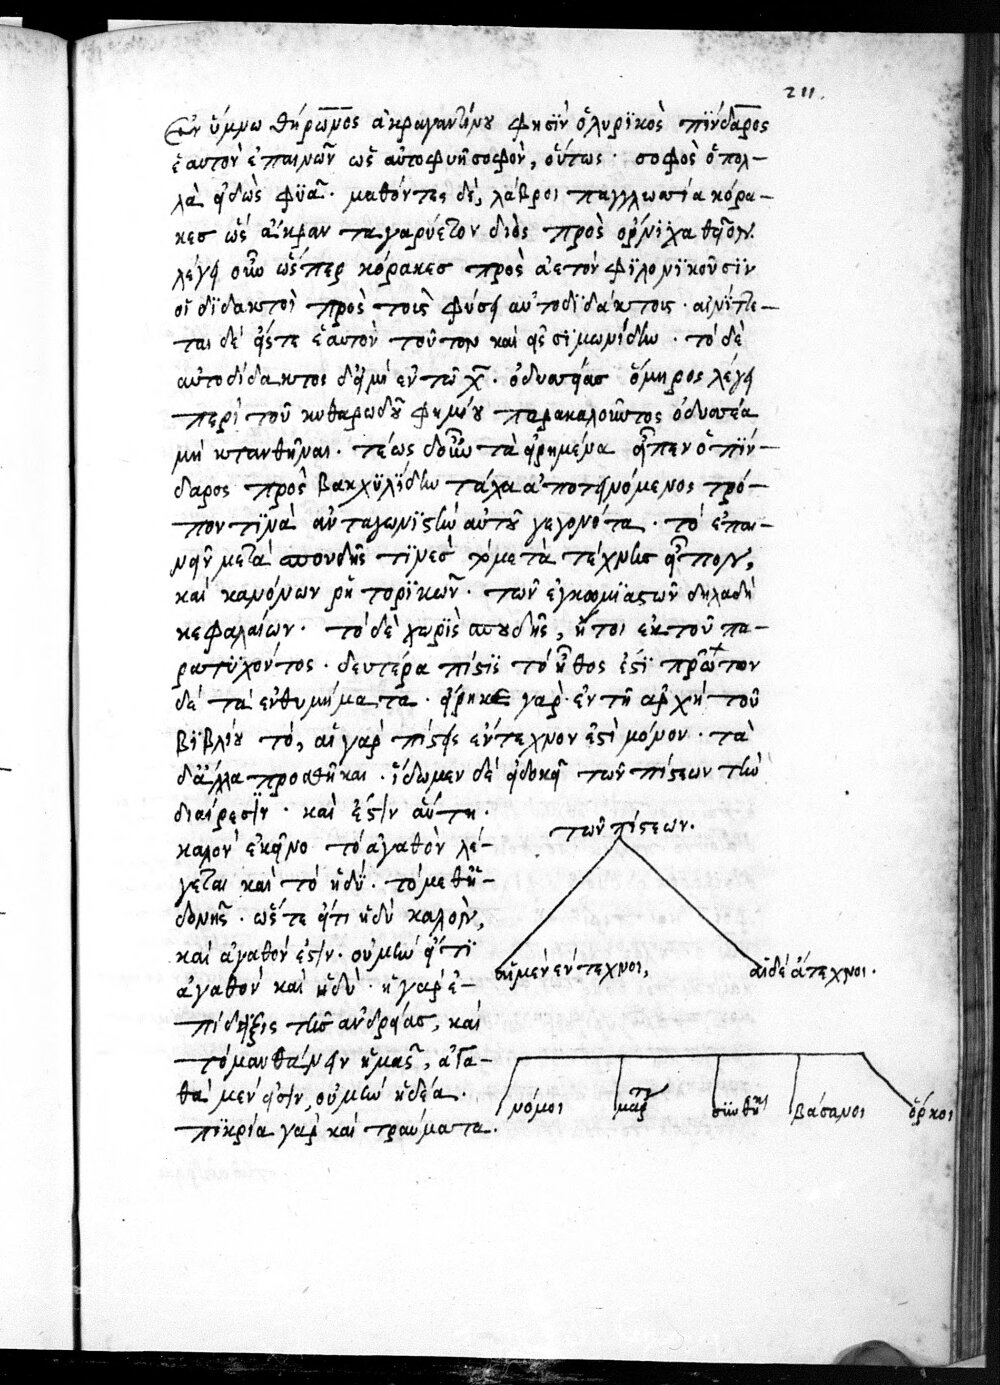 211.
Ἐν ὕμνω θήρωνος ἀκραγαντίνου φησὶν ὁ λυρϊκὸς πίνδαρος
ἑαυτὸν ἐπαινῶν ὡς αὐτοφυῆ σοφὸν, οὕτως · σοφὸς ὁ πολ–
λὰ εἰδὼς φϋᾶ · μαθόντες δὲ, λάβροι παγγλωσία κόρα–
κες ὡς ἄκραν τα γαρύετον διὸς πρὸς ὄρνϊχα θεῖον.
λέγει οὖν ὥσπερ κόρακες πρὸς ἀετὸν φϊλονϊκοῦσϊν
οἱ δϊδακτοὶ πρὸς τοὺς φύσει αὐτοδϊδάκτοις · αἰνίττε–
ται δὲ εἴς τε ἑαυτὸν τοῦτον καὶ εἰς σϊμωνίδην · τὸ δὲ
αὐτοδίδακτος δ' εἰμὶ ἐν τῇ χ · ὀδυσσείας ὅμηρος λέγει
περὶ τοῦ κυθαρωδοῦ φημίου παρακαλοῦντος ὀδυσσέα
μὴ κτανθῆναι · τέως δ' οὖν τὰ εἰρημένα εἶπεν ὁ πίν–
δαρος πρὸς βακχϋλϊδην τάχα ἀποτεινόμενος τρό–
πον τϊνὰ ἀνταγωνϊστὴν αὐτοῦ γεγονότα · τὸ ἐπαι–
νεῖν μετὰ σπουδῆς τϊνὲς τὸ μετὰ τέχνης εἶπον,
καὶ κανόνων ῥητορϊκῶν · τῶν ἐγκωμιαστῶν δηλαδὴ
κεφαλαίων · τὸ δὲ χωρὶς σπουδῆς, ἤτοι ἐκ τοῦ πα–
ρατϋχόντος · δευτέρα πίστϊς τὸ ἦθος ἐστὶ πρῶτον
δὲ τὰ ἐνθυμήματα · εἴρηκε γὰρ ἐν τῇ ἀρχῇ τοῦ
βϊβλίου τὸ, αἱ γὰρ πίστεις ἔντεχνον ἐστὶ μόνον · τὰ
δ' ἄλλα προσθῆκαι · ἴδωμεν δὲ εἰ δοκεῖ τῶν πίστεων τὴν
διαίρεσιν · καὶ ἔστιν αὕτη ·
καλὸν ἐκεῖνο τὸ ἀγαθὸν λέ–
γεται καὶ τὸ ἡδύ · τὸ μεθ' ἡ–
δονῆς · ὥστε εἴ τι ἡδὺ καλὸν,
καὶ ἀγαθόν ἐστιν · οὐ μὴν εἴ τϊ
ἀγαθὸν καὶ ἡδὺ · ἡ γὰρ ἐ–
πίδειξις τῆς ἀνδρείας, καὶ
τὸ μανθάνειν ἡμᾶς, ἀγα–
θὰ μέν εἰσιν, οὐ μὴν ἡδέα ·
πϊκρία γὰρ καὶ τραύματα ·
τῶν πίστεων ·
αἱ μὲν ἔντεχνοι,
αἱ δὲ ἄτεχνοι ·
νόμοι
μάρτυ
συνθῆκαι
βάσανοι
ὅρκοι